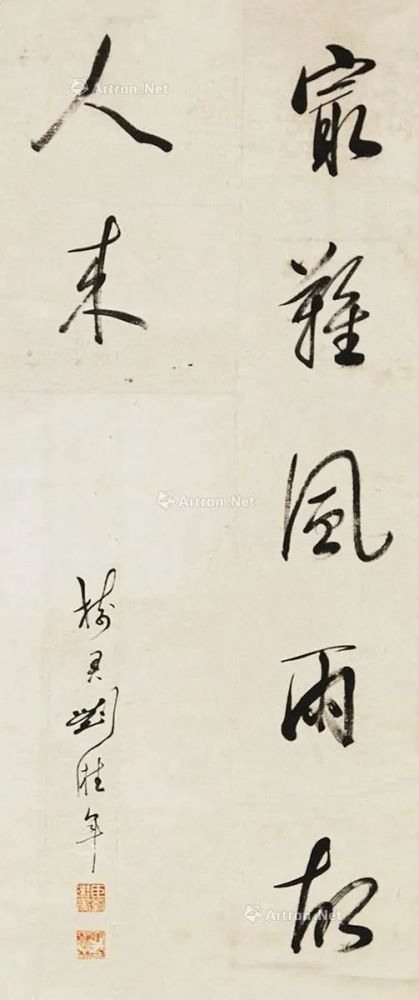 最難風雨故
人来
樹君劉溎年
Artron.Net
Artron.Net
Artron.Net